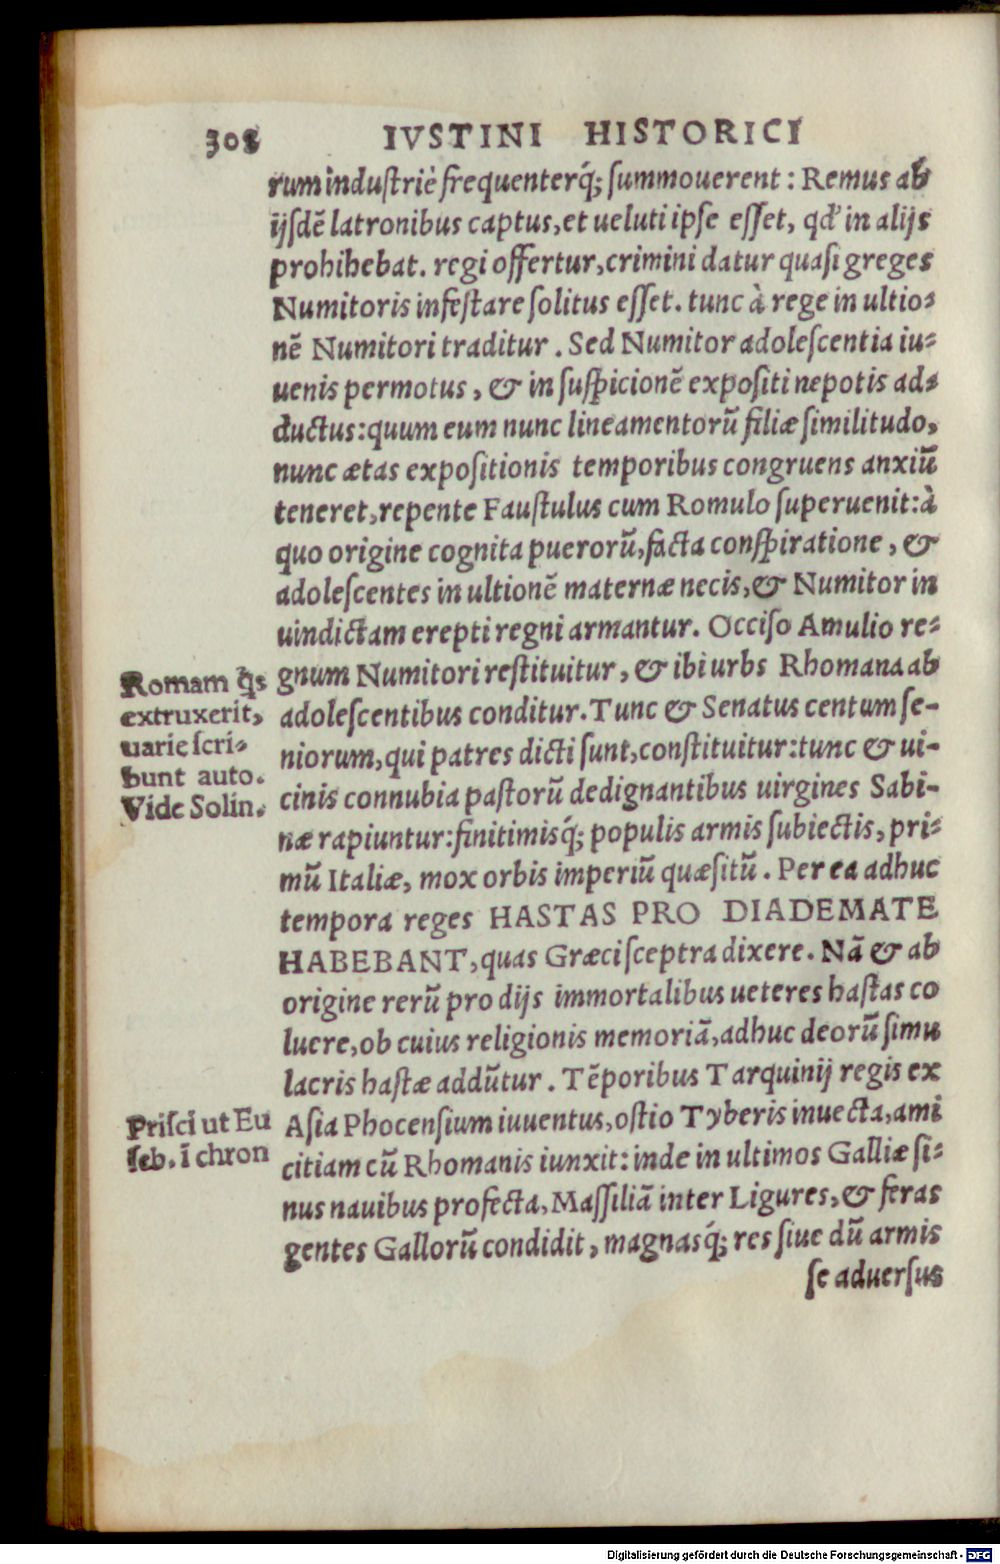 308 IVSTINI HISTORICI
rum industriè frequenterq́; summouerent: Remus ab
ijsdē latronibus captus, et ueluti ipse esset, qđ in alijs
prohibebat. regi offertur, crimini datur quasi greges
Numitoris infestare solitus esset. tunc à rege in ultio-
nē Numitori traditur. Sed Numitor adolescentia iu-
uenis permotus, & in suspicionē expositi nepotis ad-
ductus: quum eum nunc lineamentorū filiæ similitudo,
nunc ætas expositionis temporibus congruens anxiū
teneret, repente Faustulus cum Romulo superuenit: à
quo origine cognita puerorū, facta conspiratione, &
adolescentes in ultionē maternæ necis, & Numitor in
uindictam erepti regni armantur. Occiso Amulio re-
gnum Numitori restituitur, & ibi urbs Rhomana ab
adolescentibus conditur. Tunc & Senatus centum se-
niorum, qui patres dicti sunt, constituitur: tunc & ui-
cinis connubia pastorū dedignantibus uirgines Sabi-
næ rapiuntur: finitimisq́; populis armis subiectis, pri-
mū Italiæ, mox orbis imperiū quæsitū. Per ea adhuc
tempora reges HASTAS PRO DIADEMATE
HABEBANT, quas Græci sceptra dixere. Nā & ab
origine rerū pro dijs immortalibus ueteres hastas co
luere, ob cuius religionis memoriā, adhuc deorū simu
lacris hastæ addūtur. Tēporibus Tarquinij regis ex
Asia Phocensium iuuentus, ostio Tyberis inuecta, ami
citiam cū Rhomanis iunxit: inde in ultimos Galliæ si-
nus nauibus profecta, Massiliā inter Ligures, & feras
gentes Gallorū condidit, magnasq́; res siue dū armis
se aduersus
Romam q̃s
extruxerit,
uarie scri-
bunt auto.
Vide Solin.
Prisci ut Eu
seb. ī chron
Digitalisierung gefördert durch die Deutsche Forschungsgemeinschaft - DFG